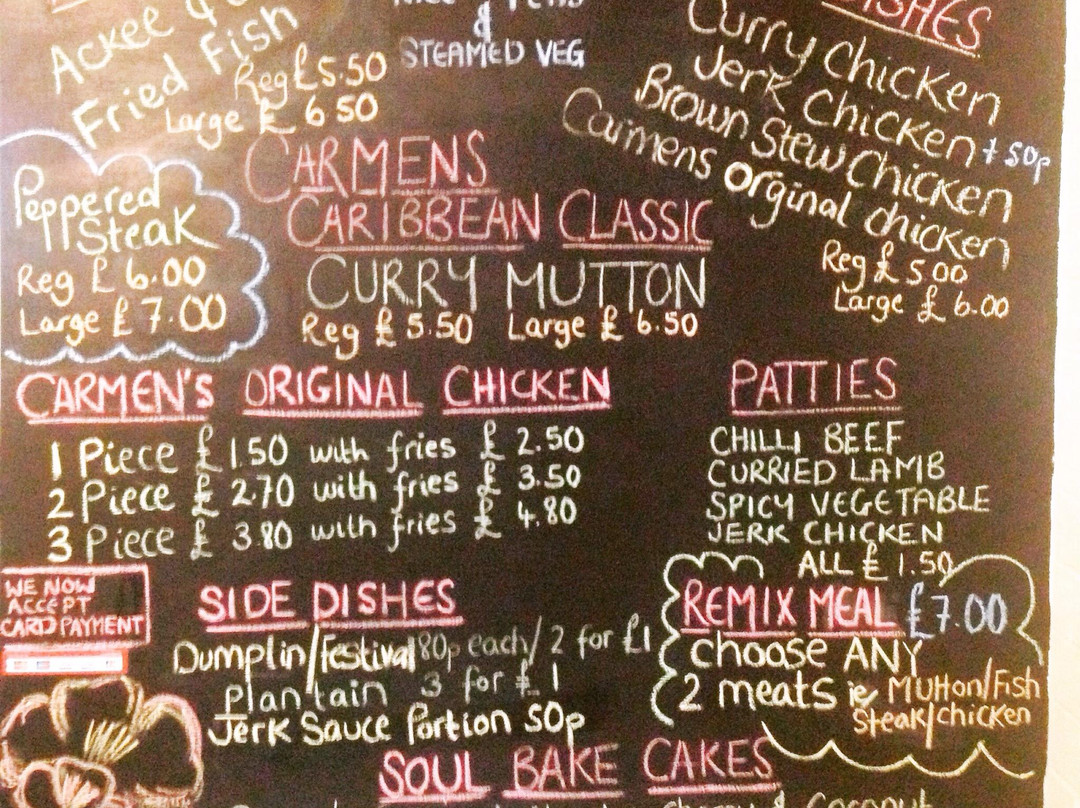 Ackee &
Fried Fish
Reg £5.50
Large £ 6 50
&
STEAMED VEG
DISHES
Curry Chicken
Jerk Chicken + 50p
Brown Stew Chicken
Carmens orginal chicken
Reg £ 5 00
Large £ 6.00
Peppered
Steak
Reg £ 6.00
Large £ 7.00
CARMENS
CARIBBEAN CLASSIC
CURRY MUTTON
Reg £ 5.50 Large £ 6.50
CARMEN'S ORIGINAL CHICKEN
1 Piece £ 1.50 with fries £ 2.50
2 Piece £ 2.70 with fries £ 3.50
3 Piece £ 3.80 with fries £ 4.80
PATTIES
CHILLI BEEF
CURRIED LAMB
SPICY VEGETABLE
JERK CHICKEN
ALL £ 1.50
WE NOW
ACCEPT
CARD PAYMENT
SIDE DISHES
Dumplin/Festival 80p each/ 2 for £1
Plantain 3 for £ 1
Jerk Sauce Portion 50p
REMIX MEAL £7.00
choose ANY
2 meats ie Mutton/Fish
Steak/chicken
SOUL BAKE CAKES
Cherry & Coconut